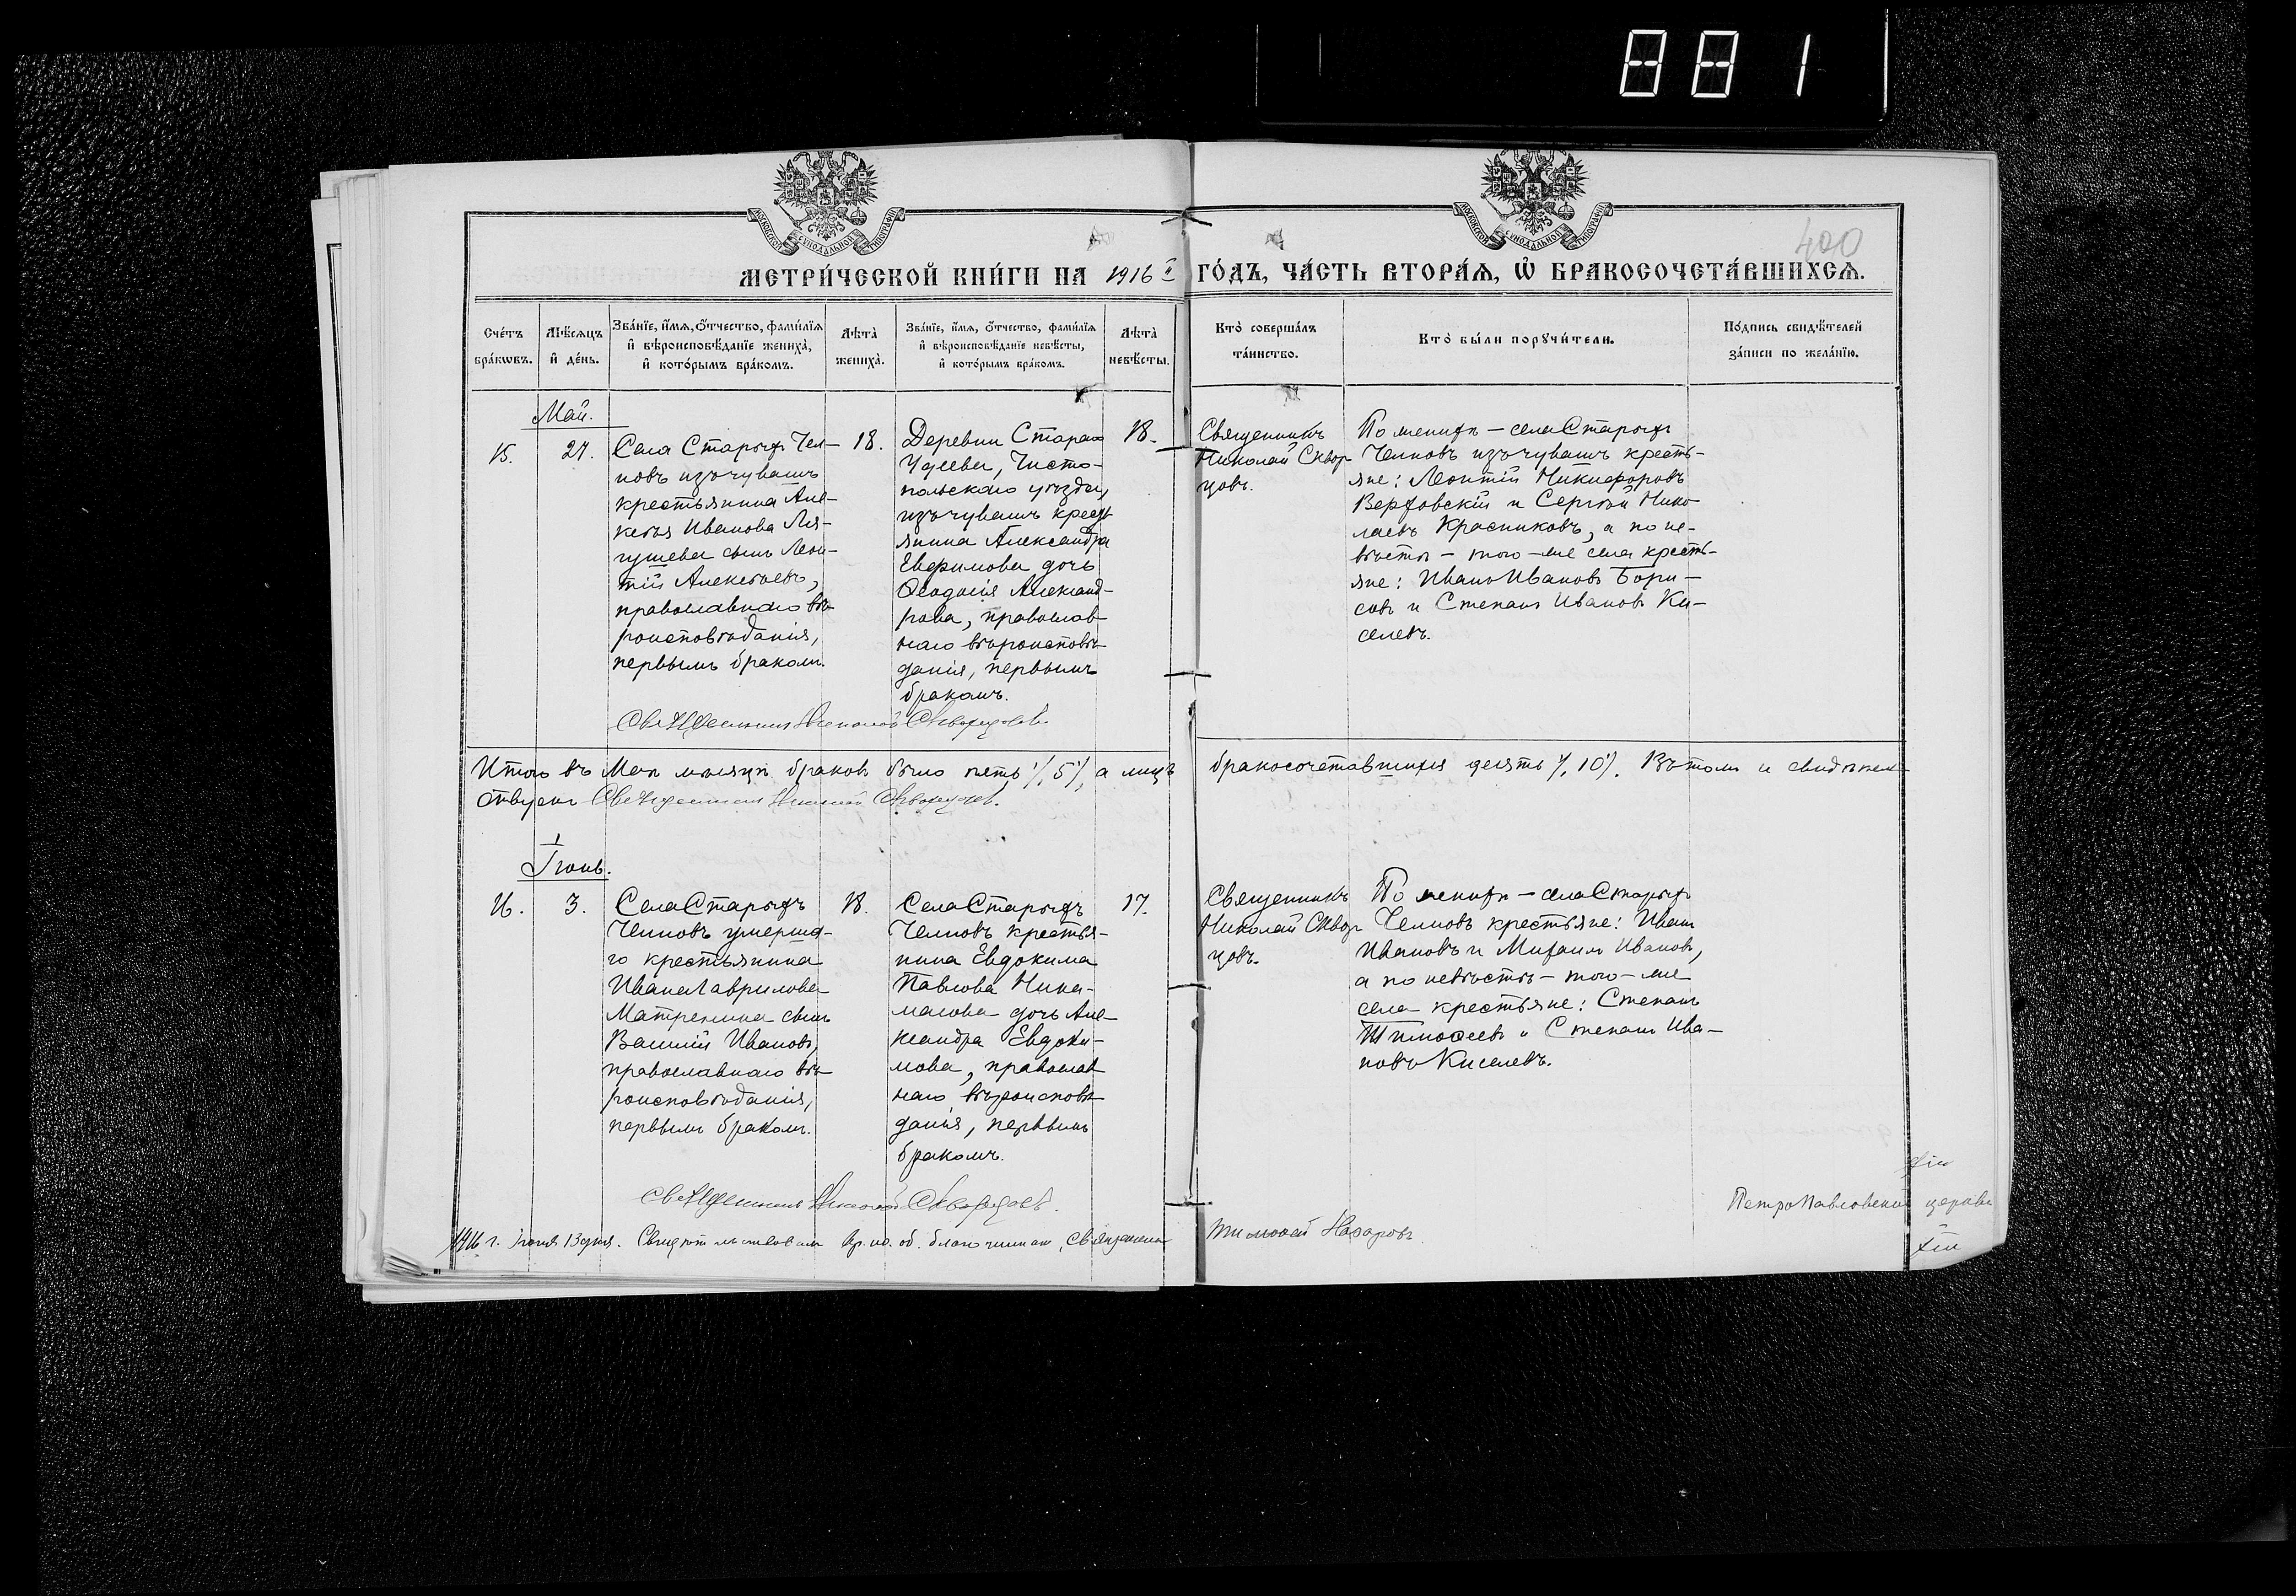 881
МОСКОВСКОЙ СѴНОДАЛЬНОЙ ТИПОГРАФІИ
МОСКОВСКОЙ СѴНОДАЛЬНОЙ ТИПОГРАФІИ
400
МЕТРИ́ЧЕСКОЙ КНИ́ГИ НА 1916 й ГО́ДЪ, ЧА́СТЬ ВТОРА́Ѧ, Ѽ БРАКОСОЧЕТА́ВШИХСѦ.
Сче́тъ бра́кѡвъ.
Мѣ́сѧцъ и҆ де́нь.
Зва́нїе, и҆́мѧ, ѻ҆́тчество, фами́лїѧ и҆ вѣроисповѣ́данїе жениха̀, и҆ кото́рымъ бра́комъ.
Лѣта̀ жениха̀.
Зва́нїе, и҆́мѧ, ѻ҆́тчество, фами́лїѧ и҆ вѣроисповѣ́данїе невѣ́сты, и҆ кото́рымъ бра́комъ.
Лѣта̀ невѣ́сты.
Кто̀ соверша́лъ та́инство.
Кто̀ бы́ли порꙋчи́тели.
По́дпись свидѣ́телей за́писи по жела́нїю.
Май.
15.
27.
Села Старыхъ Чел-
новъ изъ чувашъ
крестьянина Але-
ксѣя Иванова Ля-
гушева сынъ Леон-
тій Алексѣевъ,
православнаго вѣ-
роисповѣданія,
первымъ бракомъ.
18.
Деревни Старая
Чистo-
польскаго уѣзда,
изъ чувашъ кресть
янина Александра
Евфимова дочь
Ѳеодосія Александ-
рова, православ
наго вѣроисповѣ
данія, первымъ
бракомъ.
18.
Священникъ
Николай Сквор
цовъ.
По женихѣ – села Старыхъ
Челновъ изъ чувашъ кресть-
яне: Леонтій Никифоровъ
Верховскій и Сергѣй Нико
лаевъ Красниковъ, а по не-
вѣстѣ – того-же села кресть-
яне: Иванъ Ивановъ Бори-
совъ и Степанъ Ивановъ Ки-
селевъ.
Священникъ Николай Скворцовъ.
Итого въ Маѣ мѣсяцѣ браковъ было пять /5/, а лицъ бракосочетавшихся десять /10/. Въ томъ и свидѣтель
ствуемъ Священникъ Николай Скворцовъ.
Іюнь.
16.
3.
Села Старыхъ
Челновъ умерша-
го крестьянина
Ивана Гаврилова
Матренина сынъ
Василій Ивановъ,
православнаго вѣ
роисповѣданія,
первымъ бракомъ.
18.
Села Старыхъ
Челновъ крестья-
нина Евдокима
Павлова Ника-
дочь Але-
ксандра Евдоки-
мова, православ
наго вѣроисповѣ
данія, первымъ
бракомъ.
17.
Священникъ
Николай Сквор
цовъ.
По женихѣ – села Старыхъ
Челновъ крестьяне: Иванъ
Ивановъ и Михаилъ Ивановъ,
а по невѣстѣ – того-же
села крестьяне: Степанъ
Тимоѳеевъ и Степанъ Ива-
новъ Киселевъ.
Священникъ Николай Скворцовъ.
Петропавловской церкви
1916 г. іюня 13 дня. Свидѣтельствовалъ об. благочиннаго, священникъ Тимоѳей Назаровъ